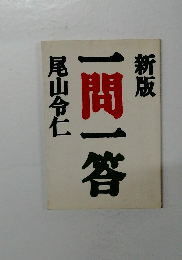 新版
一問一答
尾山令仁